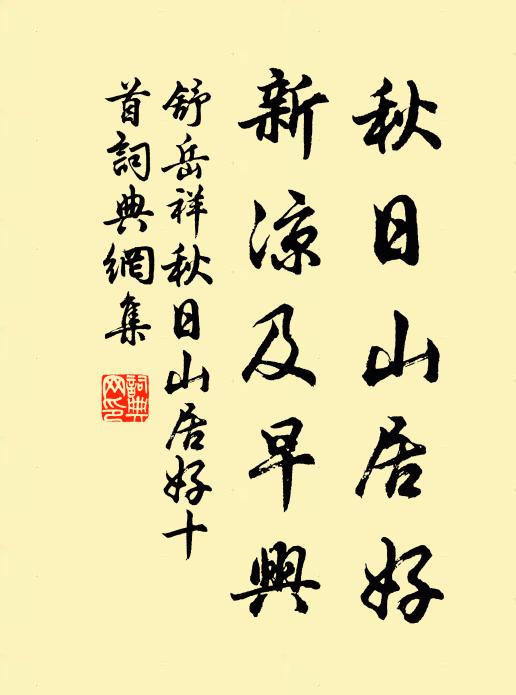 秋日山居好
新凉及早興
舒岳祥秋日山居好十
首詞典網集
詞典
网印